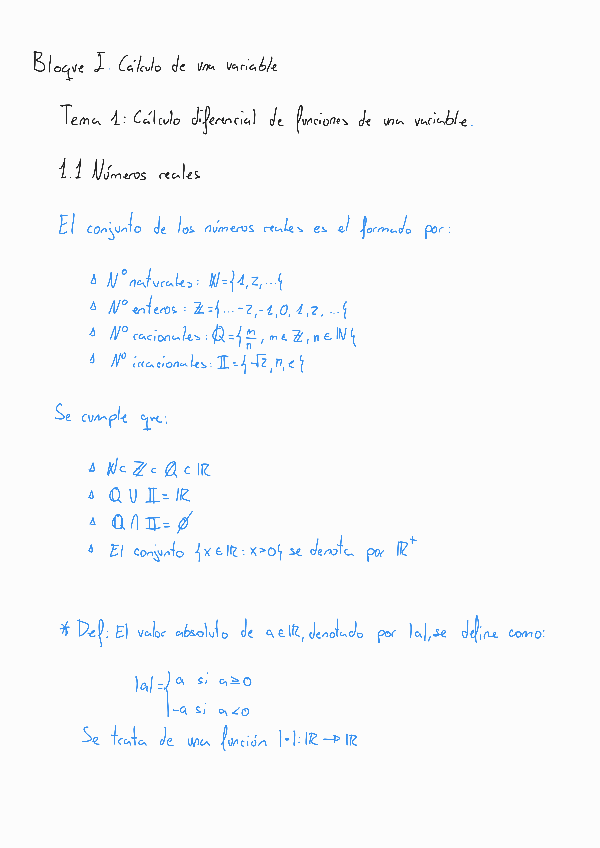 Bloque I. Cálculo de una variable
Tema 1: Cálculo diferencial de funciones de una variable.
1.1 Números reales
El conjunto de los números reales es el formado por:
Δ Nº naturales: ℕ={1,2,...}
Δ Nº enteros: ℤ={...-2,-1,0,1,2,...}
Δ Nº racionales: ℚ={m/n, m∈ℤ, n∈ℕ}
Δ Nº irracionales: 𝕀={√2, π, e}
Se cumple que:
Δ ℕ⊂ℤ⊂ℚ⊂ℝ
Δ ℚ∪𝕀=ℝ
Δ ℚ∩𝕀=∅
Δ El conjunto {x∈ℝ: x>0} se denota por ℝ⁺
* Def: El valor absoluto de a∈ℝ, denotado por |a|, se define como:
|a|={a si a≥0
-a si a<0
Se trata de una función |·|:ℝ→ℝ